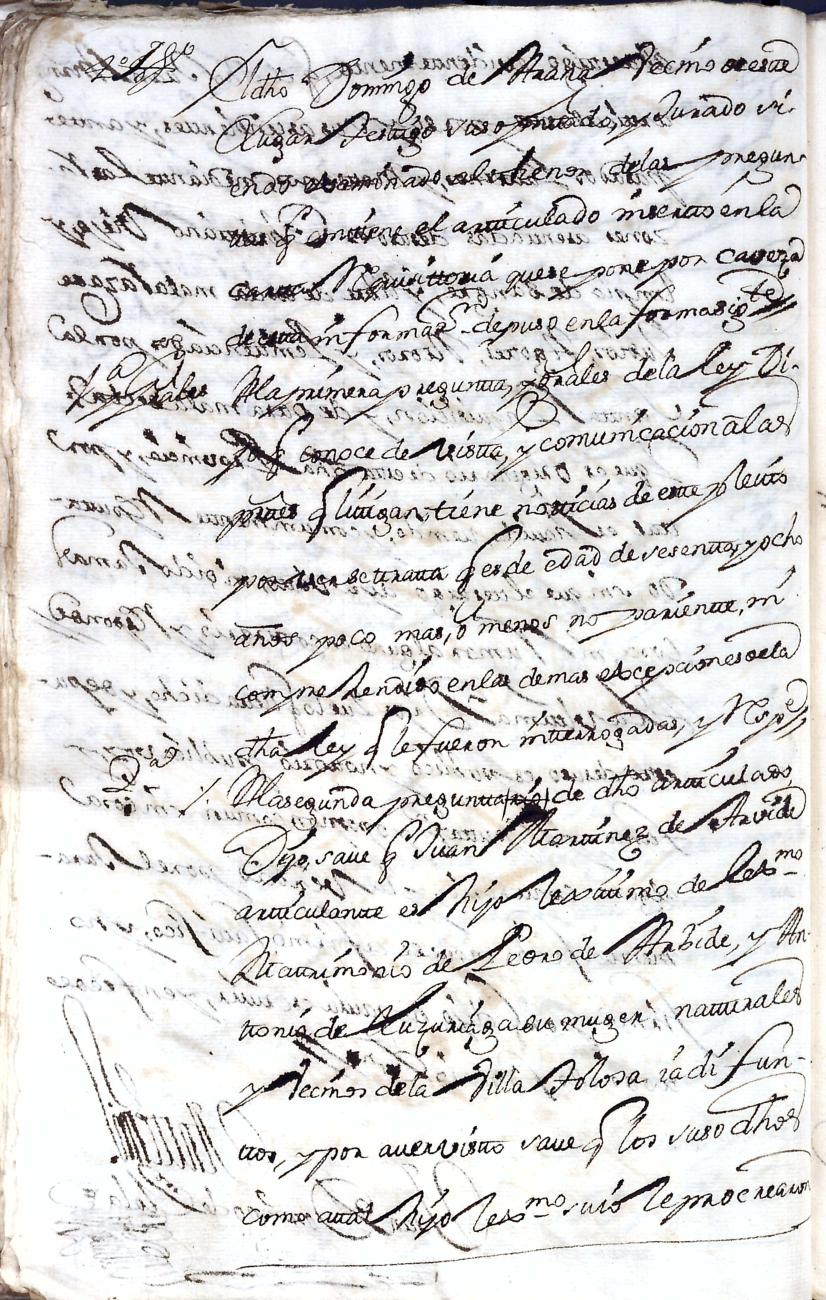 2º tsgo
El dho Domingo de Arana Vecino de este
Lugar testigo suso pntado, y Jurado si-
endo examinado al thenor delas pregun-
tas q contiene el articulado inserto en la
carta Requisittoria que se pone por caveza
de esta informaon depuso en la forma sigte
1ª y Grales A la primera pregunta, y Grales de la ley Di-
jo q conoce de vistta, y comunicacion a las
parttes q litigan tiene notticias de este pleitto
por que se tratta q es de edad de sesentta, y ocho
años poco mas, ó menos no parientte, ni
comprehendido en las demas excepciones dela
dha ley q le fueron interrogadas, y Respde
2ª A la segunda pregunta de dho articulado
Dijo, save q Juan Martinez de Arvide
articulantte es hijo lexitimo de lexmo
Matrimonio de Pedro de Arbide, y An-
ttonia de Luzuriaga su muger naturales
y Vecinos de la Villa Tolosa ia difun-
ttos, y por aver visto save q los suso dhos
como a ttal hijo lexmo suio le procrearon